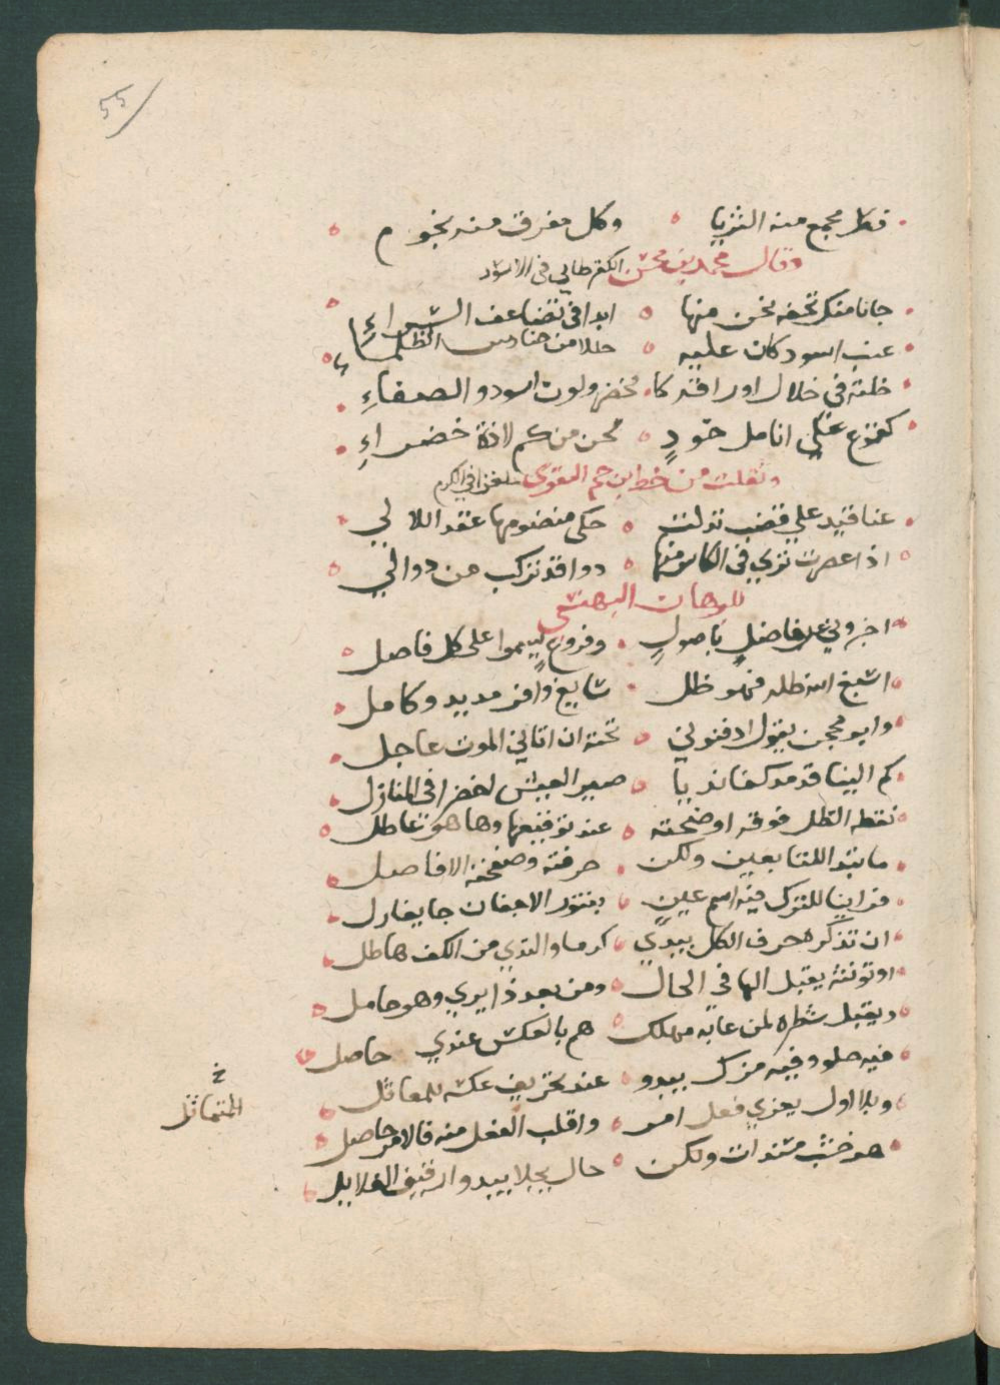 55
فكل مجمع منه الثريا وكل مفرق منه نجوم
وقال محمد بن محسن الكفرطابي في الاسود
جانا منك تحفه نحن منها ابدا في تضاعف السراء
عنب اسود كان عليه حللا من حنادس الظلماء
خلته في خلال اوراقه كا مخضر ولون اسود والصفاء
كقموع على انامل خودٍ محن من كم لاذة خضراءِ
ونقلت من خط ابن حجر المقري ملغزا في الكرم
عناقيد علي قضب تدلت حكي منضومها عقد اللالي
اذا عصرت تري في الكاس منها دوا قد تركب من دوالي
للبرهان البهنسي
اخبروني عن فاضلٍ باصولٍ وفروعٍ يسموا على كل فاضل
اسبغ الله ظله فهو ظل سابغ وافر مديد وكامل
وابو محجن يقول ادفنوني تحته ان اتاني الموت عاجل
كم الينا قد مد كفا نديا صير العيش اخضرا في المنازل
نقطه الطل فوقه اوضحته عند توقيعها وها هو عاطل
ما بتوا للتابعين ولكن حرفته وصحفته الافاضل
فراينا للترك فيه اسم عينٍ بفتور الاجفان جا يغازل
ان تذكره حرف الكل يبدي كرما والندي من الكف هاطل
او تونثه يقبل الها في الحال ومن بعد ذا يري وهو حامل
ويقبل شطره لمن عابه مهلك هم بالعكس عندي حاصل
فيه حلو وفيه مزك يبدو عند تحريف عكسه للمعاتل
خ
المتماثل
وبلا اول يعزي فعل امر واقلب الفعل منه فالامر حاصل
هو خشب مسندات ولكن حال يجلا يبدو رقيق الغلايل